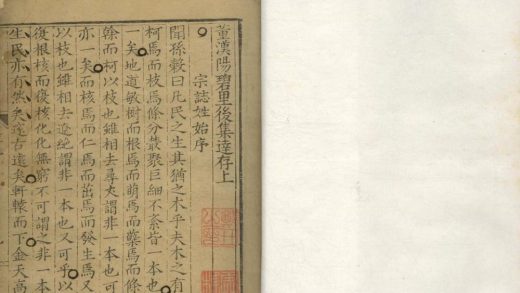 董漢陽碧里後集達存上
宗誌姓始序
聞孫穀曰凡民之生其猶之木乎夫木之有
柯焉而枝焉條分叢聚巨細不紊皆一本也
一矣地道敏樹而根焉而萌焉而蘖焉而條
榦而柯以枝也雖相去尋丈謂非一本也可
亦一矣而核焉而仁焉而茁焉而發生焉又
以枝也雖相去遼絶謂非一本也又可乎以
復根核而復核化化無窮不可謂之非一本
生民亦有然矣邃古遠矣軒轅而下金天高